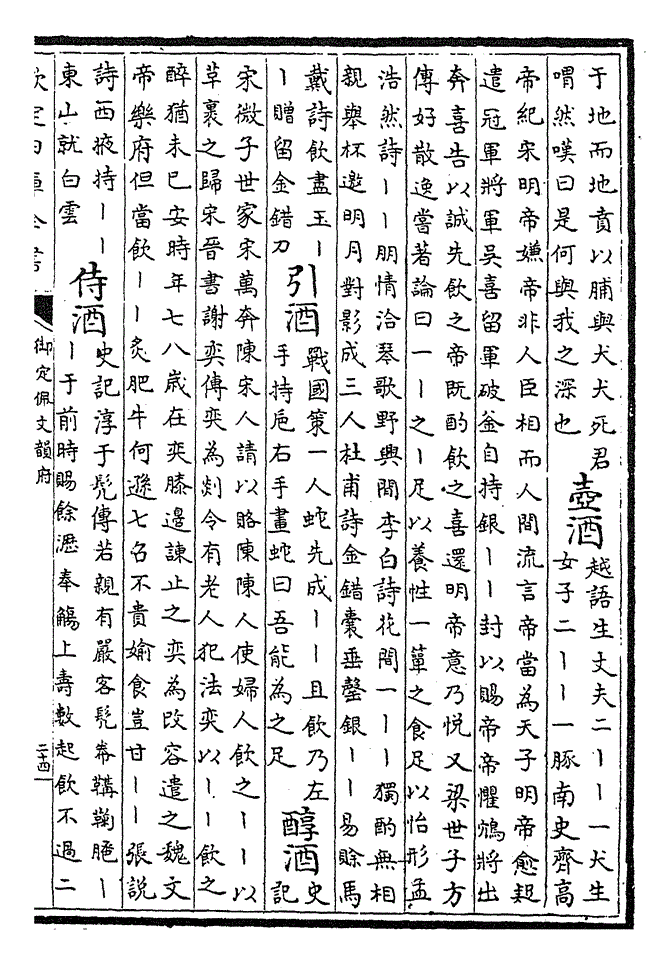 于地而地賁以脯與犬犬死君
喟然嘆曰是何與我之深也
壺酒
越語生丈夫二丨丨一犬生
女子二丨丨一豚南史齊高
帝紀宋明帝嫌帝非人臣相而人間流言帝當為天子明帝愈疑
遣冠軍將軍吳喜留軍破釜自持銀丨丨封以賜帝帝懼鴆將出
奔喜告以誠先飲之帝既酌飲之喜還明帝意乃悅又梁世子方
傳好散逸嘗著論曰一丨之丨足以養性一簞之食足以怡形孟
浩然詩丨丨朋情洽琴歌野興閒李白詩花間一丨丨獨酌無相
親舉杯邀明月對影成三人杜甫詩金錯囊垂罄銀丨丨易賒馬
戴詩飲盡玉丨
丨贈留金錯刀
引酒
戰國策一人蛇先成丨丨且飲乃左
手持巵右手畫蛇曰吾能為之足
醇酒
史
記
宋微子世家宋萬奔陳宋人請以賂陳陳人使婦人飲之丨丨以
草裹之歸宋晉書謝奕傳奕為剡令有老人犯法奕以丨丨飲之
醉猶未已安時年七八歲在奕膝邊諫止之奕為改容遣之魏文
帝樂府但當飲丨丨炙肥牛何遜七召不貴媮食豈甘丨丨張說
詩西掖持丨丨
東山就白雲
侍酒
史記淳于髡傳若親有嚴客髡帣鞲鞠䠆丨
丨于前時賜餘瀝奉觴上壽數起飲不過二
欽定四庫全書
御定佩文韻府
二十四